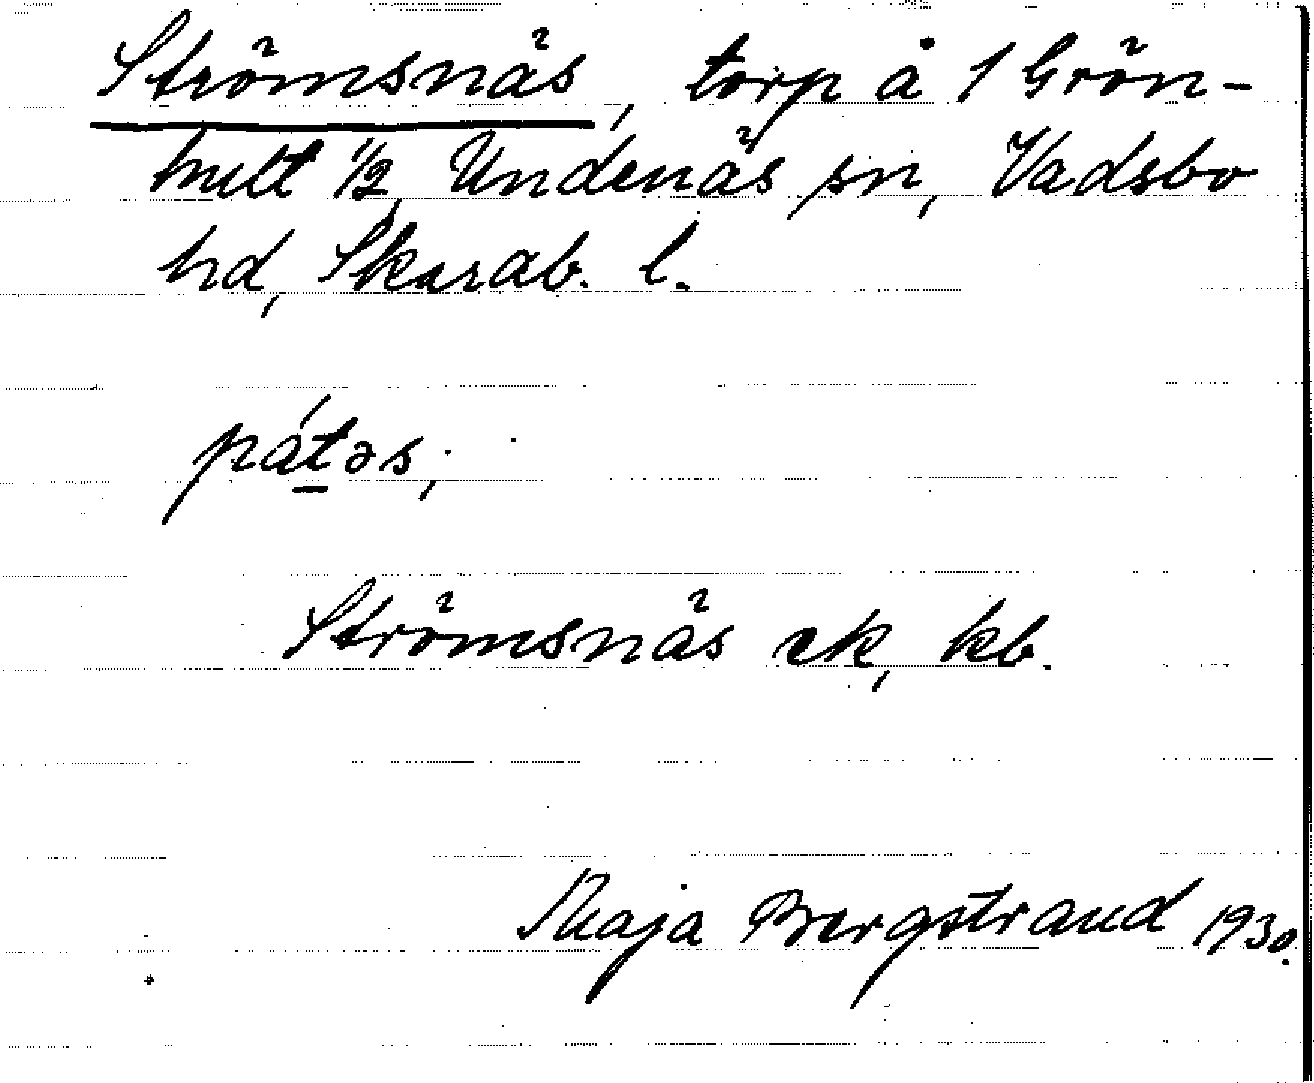 Strömsnäs, torp å 1 Grön-
hult 1/2, Undenäs sn, Vadsbo
hd, Skarab. l.
pátəs;
Strömsnäs ek, kb.
Maja Bergstrand 1930.